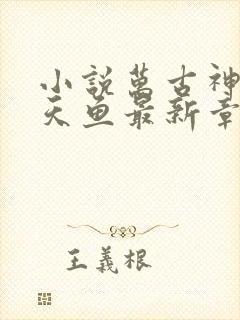 小說萬古神
天魚最新章
王義根